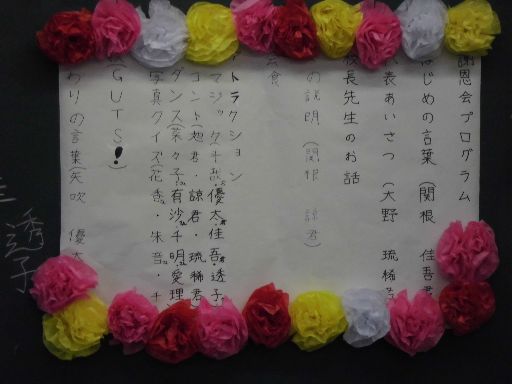 謝恩会プログラム
はじめの言葉(関根 佳吾君
代表あいさつ(大野 琉稀
校長先生のお話
の説明(関根 諒君)
会食
トラクション
マジック(千哉・優太・佳吾・透子
コント(旭君・諒君・琉稀君
ダンス(菜々子・有沙・千明・愛理
写真クイズ(花香・朱音・千
(GUTS!)
わりの言葉(矢吹 優太
透子